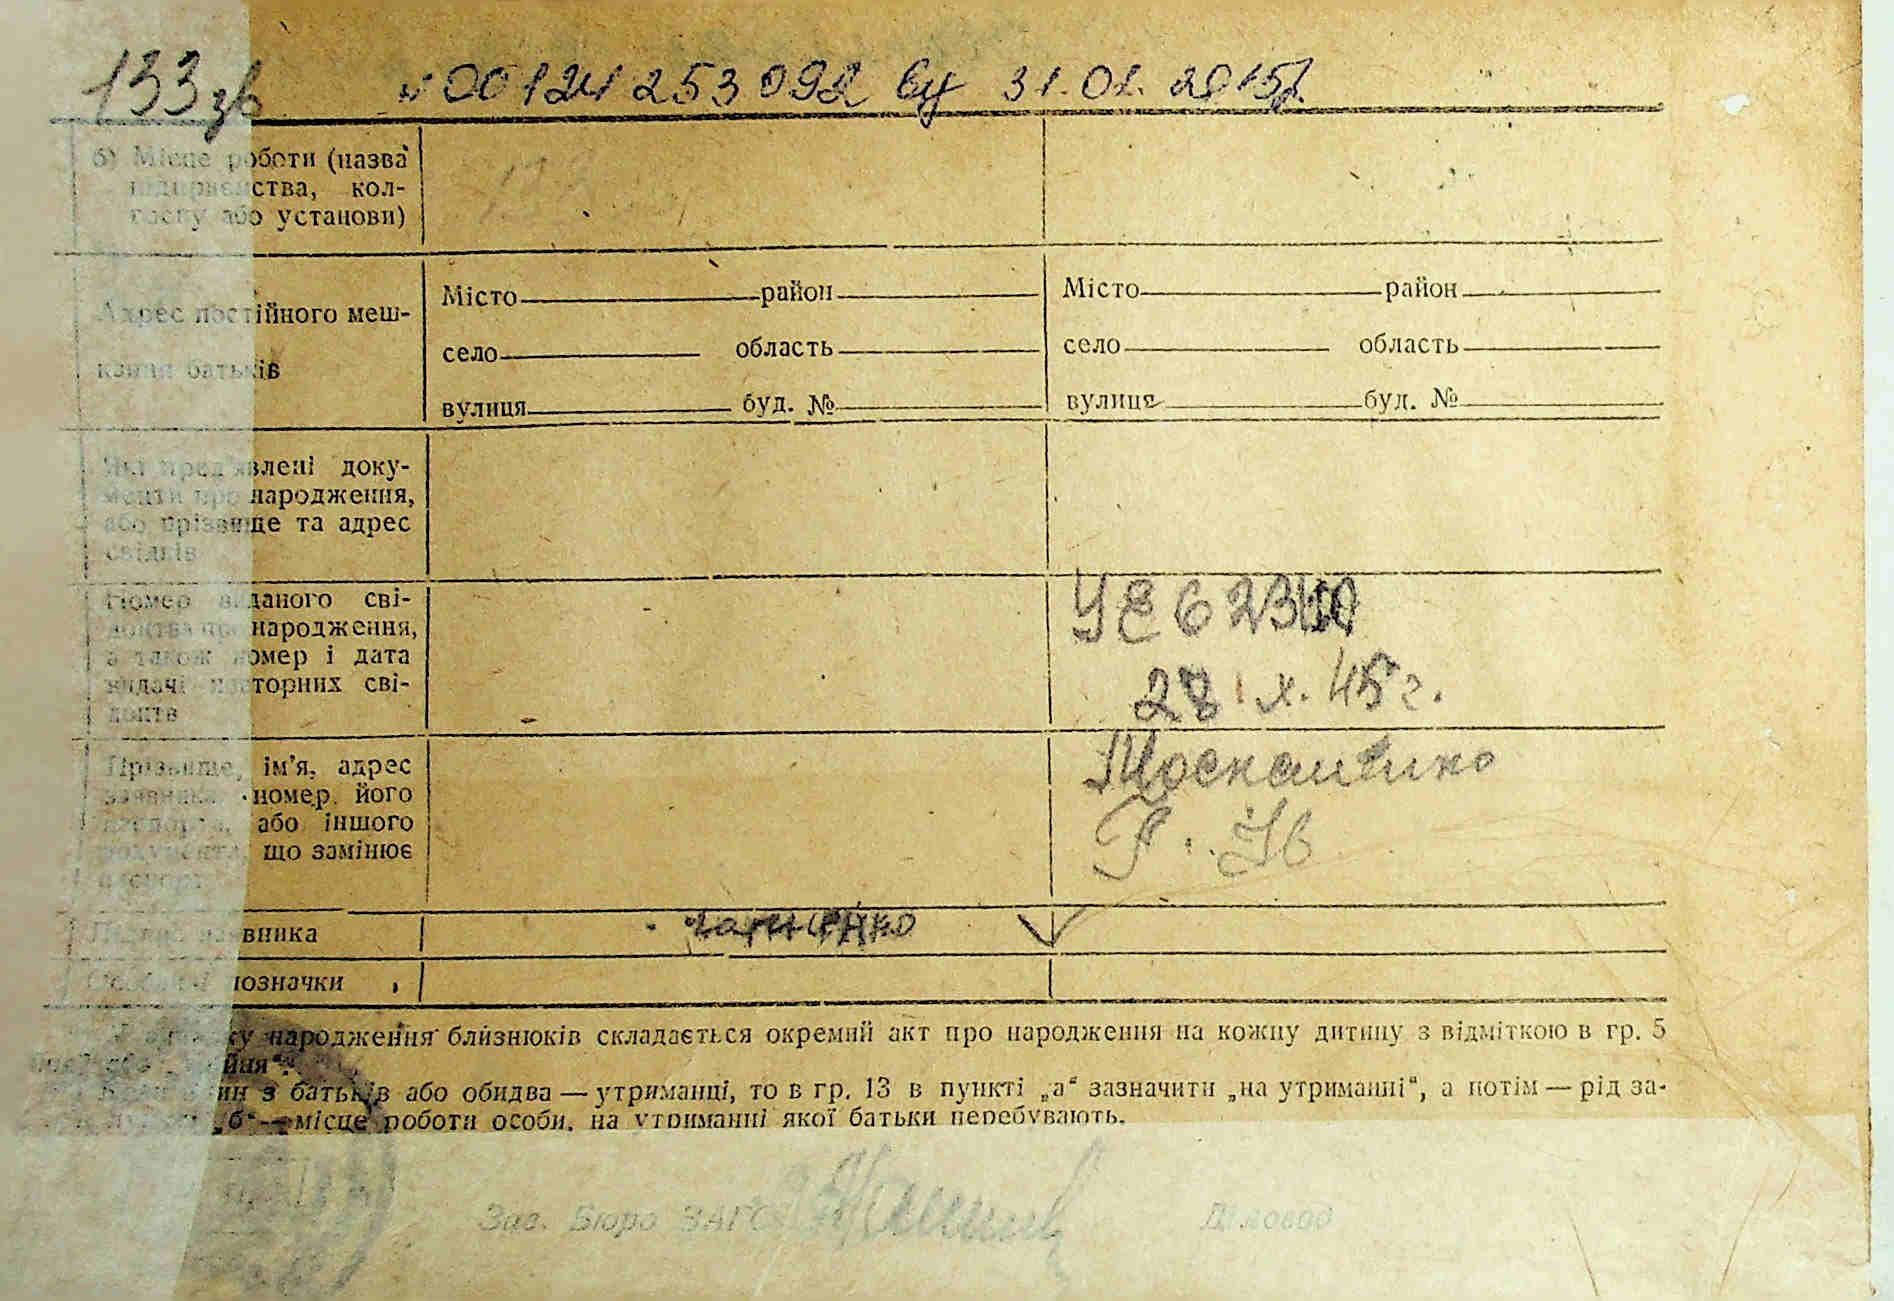 133зв № 00124253092 від 31.01.2015р.
б) Місце роботи (назва
підприємства, кол-
госпу або установи)
Місто район Місто район
Адрес постійного меш-
село область село область
кання батьків
вулиця буд. № вулиця буд. №
Які пред'явлені доку-
менти про народження,
або прізвище та адрес
свідків
Номер виданого сві-
доцтва про народження,
а також номер і дата
видачі повторних сві-
доцтв
УЕ 623
28. X. 45 г.
Прізвище, ім'я, адрес
заявника, номер його
паспорта, або іншого
документа, що замінює
паспорт
Підпис заявника
Особливі позначки
народження близнюків складається окремий акт про народження на кожну дитину з відміткою в гр. 5
з батьків або обидва — утриманці, то в гр. 13 в пункті „а“ зазначити „на утриманні“, а потім — рід за-
„б“ — місце роботи особи, на утриманні якої батьки перебувають.
Зав. Бюро ЗАГС Діловод